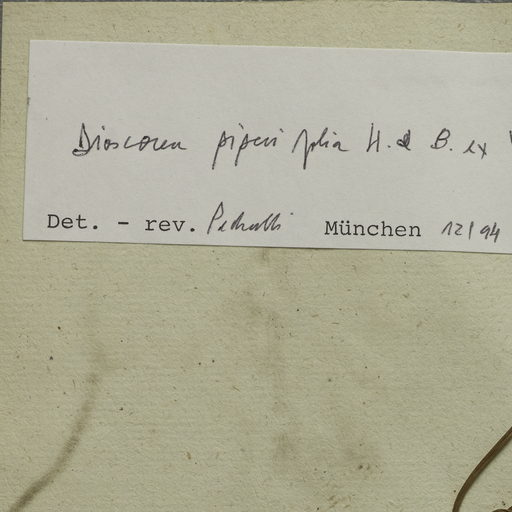 Dioscorea piperifolia H. & B. ex
Det. - rev. Pedralli München 12/94